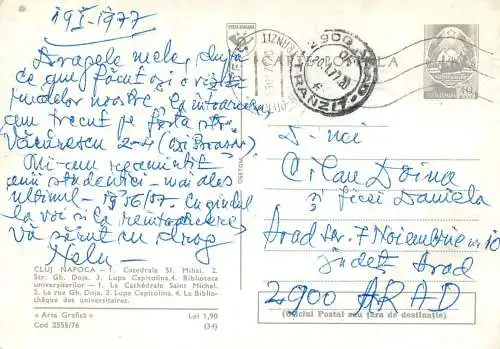 19 I - 1977
Dragele mele, după
ce am făcut și o vizită
rudelor noastre, la întoarcere
am trecut pe fosta str.
Văcărescu 2-4 (azi Brașov)
Mi-am reamintit
anii studenției - mai ales
ultimul - 1956/57. Cu gîndul
la voi și la reîntoarcere
Vă sărut cu drag
Nelu
CLUJ NAPOCA — 1. Catedrala Sf. Mihai. 2.
Str. Gh. Doja. 3. Lupa Capitolina. 4. Biblioteca
universitarilor — 1. La Cathédrale Saint Michel.
2. La rue Gh. Doja. 3. Lupa Capitolina. 4. La Biblio-
thèque des universitaires.
« Arta Grafică » Lei 1,90
Cod 2555/76 (34)
CARTE POȘTALA
2900
TRANZIT
D-nei
Cilan Doina
și ficei Daniela
Arad str. 7 Noiembrie nr 10
Județ Arad
2900 ARAD
(Oficiul Poștal sau țara de destinație)